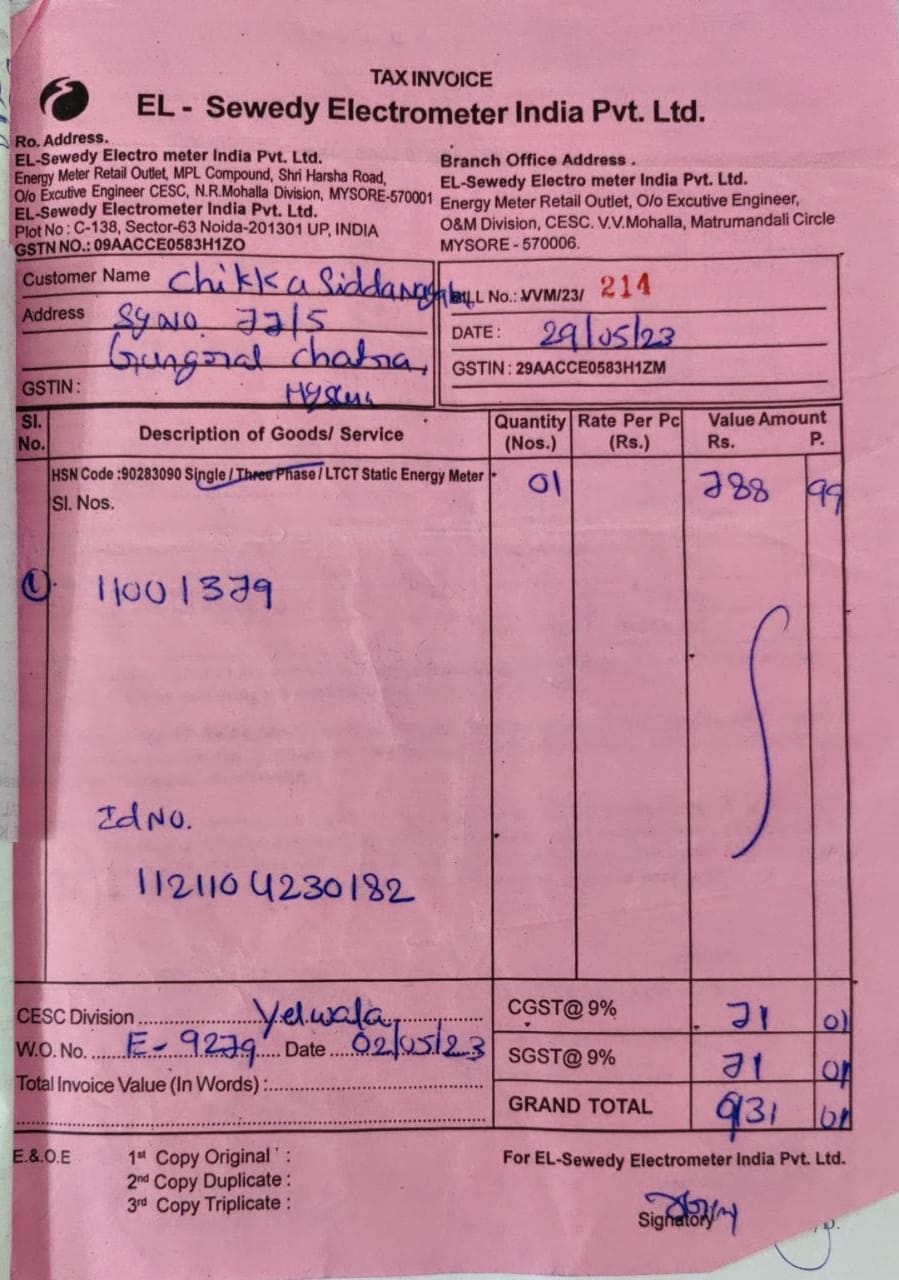 TAX INVOICE
EL - Sewedy Electrometer India Pvt. Ltd.
Ro. Address.
EL-Sewedy Electro meter India Pvt. Ltd.
Energy Meter Retail Outlet, MPL Compound, Shri Harsha Road,
O/o Excutive Engineer CESC, N.R.Mohalla Division, MYSORE-570001
EL-Sewedy Electrometer India Pvt. Ltd.
Plot No : C-138, Sector-63 Noida-201301 UP, INDIA
GSTN NO.: 09AACCE0583H1ZO
Branch Office Address .
EL-Sewedy Electro meter India Pvt. Ltd.
Energy Meter Retail Outlet, O/o Excutive Engineer,
O&M Division, CESC. V.V.Mohalla, Matrumandali Circle
MYSORE - 570006.
Customer Name
Address Sy NO. 77/5
GSTIN :
BILL No.: VVM/23/ 214
DATE : 29/05/23
GSTIN : 29AACCE0583H1ZM
Sl. No. Description of Goods/ Service Quantity (Nos.) Rate Per Pc (Rs.) Value Amount Rs. P.
HSN Code :90283090 Single / Three Phase / LTCT Static Energy Meter 01 788 99
Sl. Nos.
1. 11001379
Id NO.
1121104230182
CESC Division Yelwala
W.O. No. E-9279 Date 02/05/23
Total Invoice Value (In Words) :
CGST@ 9% 71 01
SGST@ 9% 71 01
GRAND TOTAL 931 01
E.&.O.E 1st Copy Original :
2nd Copy Duplicate :
3rd Copy Triplicate :
For EL-Sewedy Electrometer India Pvt. Ltd.
Signatory